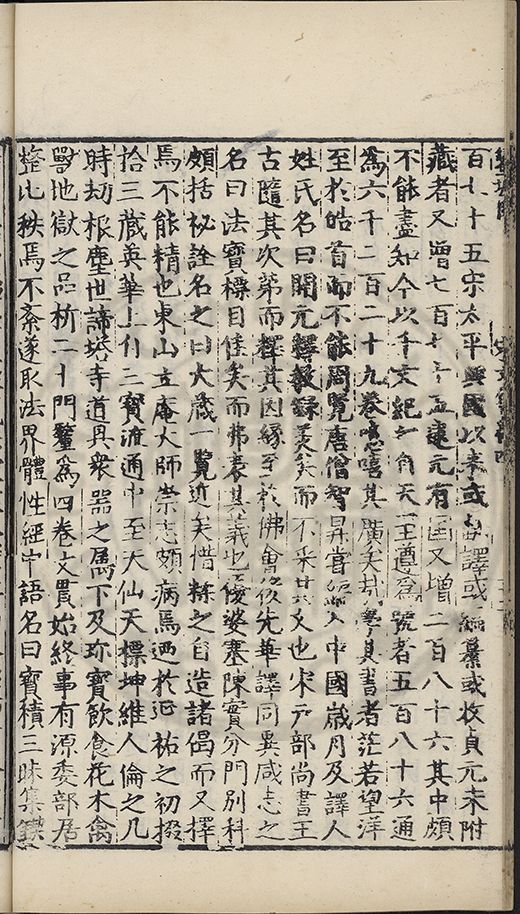 百七十五宋太平興國以來或譯或編纂或收貞元未附
藏者又增七百七十五遠元有國又增二百八十六其中頗
不能盡知今以千文紀之自天至遵為號者五百八十六通
為六千二百二十九卷噫嘻其廣矣哉學其書者茫若望洋
至於皓首而不能周覽唐僧智昇嘗總入中國歲月及譯人
姓氏名曰開元釋教錄美矣而不采其文也宋戶部尚書王
古隨其次第而釋其因緣至於佛會後先華譯同異咸志之
名曰法寶標目佳矣而弗表其義也優婆塞陳實分門別科
頗括祕詮名之曰大藏一覽近矣惜雜之自造諸偈而又擇
焉不能精也東山立庵大師崇志頗病焉迺於延祐之初掇
拾三藏英華上倣三寶流通中至天仙天標坤維人倫之几
時劫根塵世諦塔寺道具衆器之屬下及珎寶飲食花木禽
獸地獄之品析二十門釐為四卷文貫始終事有源委部居
整比秩焉不紊遂取法界體性經中語名曰寶積三昧集鏤